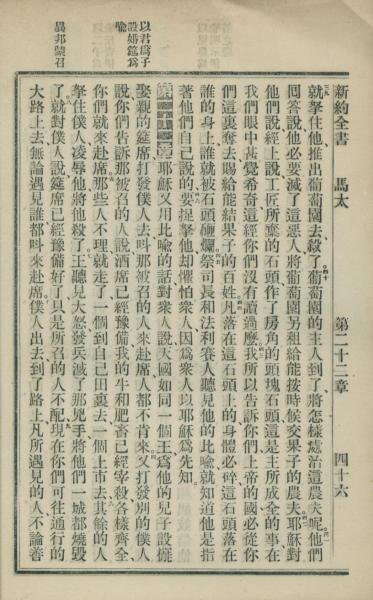 新約全書 馬太 第二十二章 四十六
就拏住他、推出葡萄園去殺了、葡萄園的主人到了、將怎樣處治這農夫呢、他們
回答說、他必要滅了這惡人、將葡萄園另租給能按時候交果子的農夫、耶穌對
他們說、經上說、工匠所棄的石頭、作了房角的頭塊石頭、這是主所成全的事、在
我們眼中甚覺希奇、這經你們沒有讀過麽、我所以告訴你們、上帝的國必從你
們這裏奪去、賜給能結果子的百姓、凡落在這石頭上的、身體必碎、這石頭落在
誰的身上、誰就被石頭砸爛、祭司長和法利賽人聽見他的比喻、就知道他是指
著他們自己說的、要捉拏他、却懼怕衆人、因爲衆人以耶穌爲先知、
耶穌又用比喻的話對衆人說、天國如同一個王、爲他的兒子設擺
娶親的筵席、打發僕人去叫那被召的人來赴席、人都不肯來、又打發別的僕人
說、你們告訴那被召的人說、酒席已經豫備、我的牛和肥畜已經宰殺、各樣齊全、
你們就來赴席、那些人不理就走了、一個到自己田裏去、一個上市去、其餘的人
拏住僕人、凌辱他、將他殺了、王聽見大怒、發兵滅了那兇手、將他們一城都燒毀
了、就對僕人說、筵席已經豫備好了、只是所召的人不配、現在你們可往通行的
大路上去、無論遇見誰、都叫來赴席、僕人出去到了路上、凡所遇見的人、不論善
以君爲子
設婚筵爲
喻
異邦蒙召